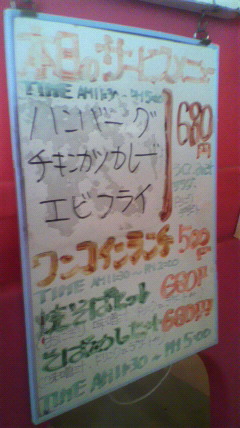 本日のサービスメニュー
TIME AM11:30 ~ PM5:00
ハンバーグ
チキンカツカレー
エビフライ
680円
ワンコインランチ 500円
TIME AM11:30 ~ PM2:00
焼そばセット 680円
そばめしセット 680円
TIME AM11:30 ~ PM5:00